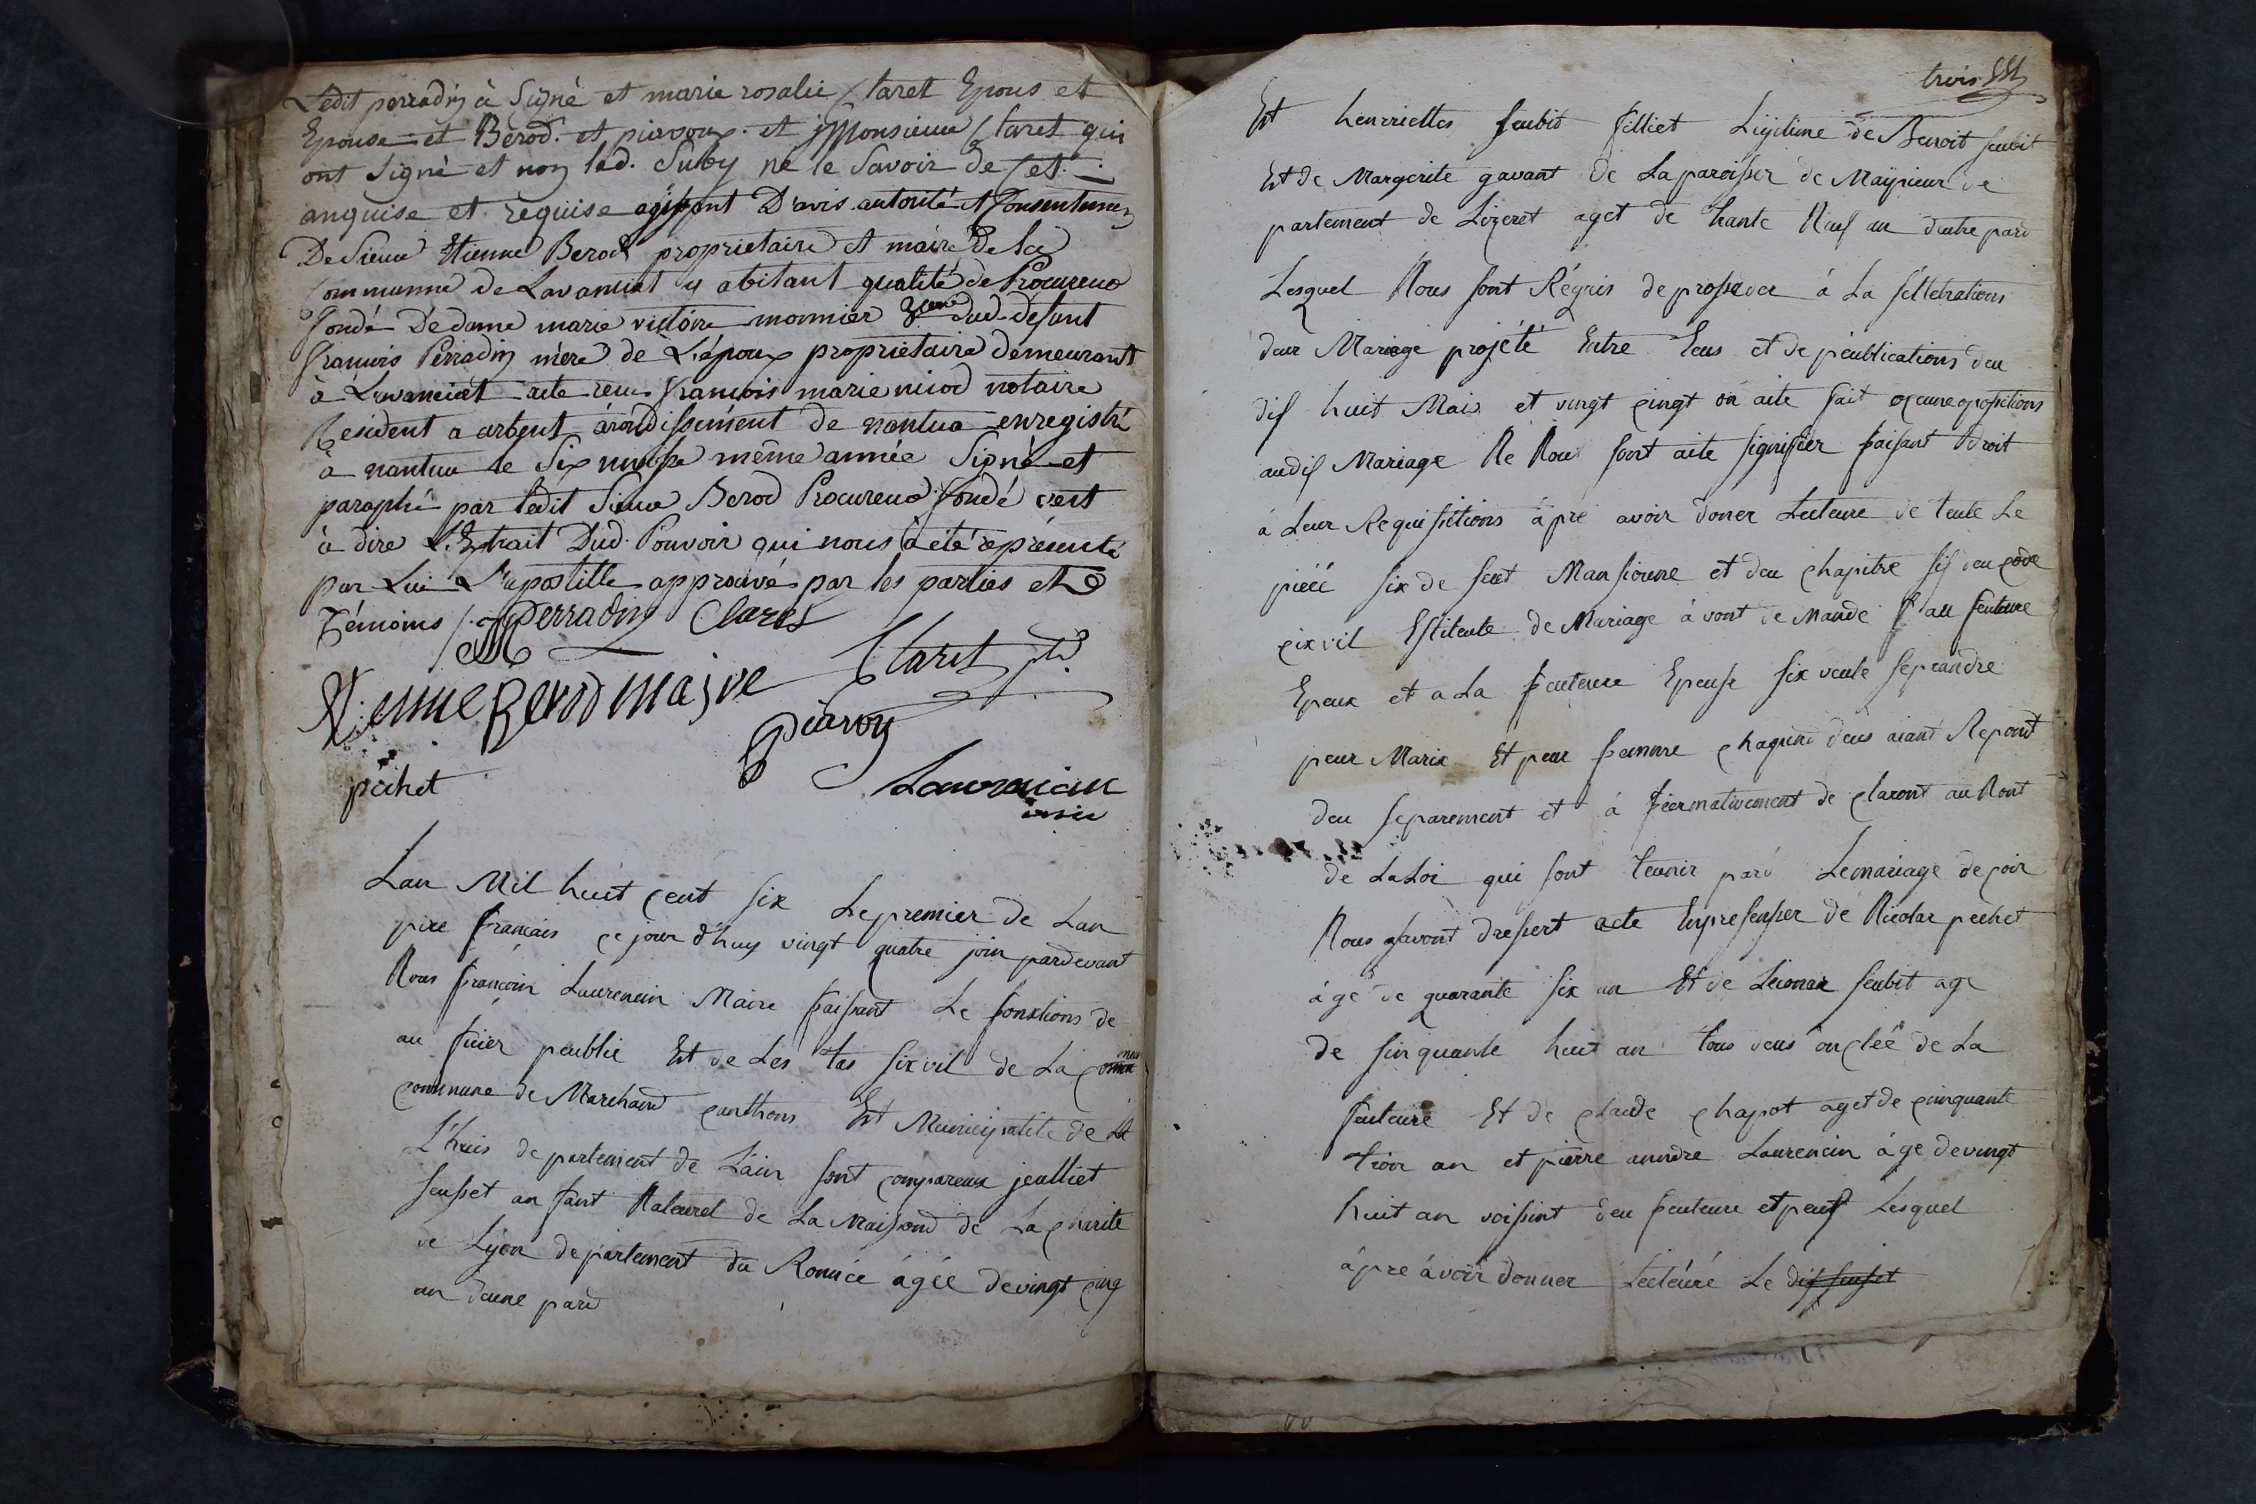 Ledit perradin à Signé et marie rosalie Claret Epous et
Epouse et Berod. et piarron. et Monsieur Claret qui
ont signé et non lad. Suby ne le Savoir de cet.
anquise et requise agissant D'avis autorité et Consentement
De Sieur Etienne Berod proprietaire et maire de la
Commune de Lavanciat y abitant qualité de Procureur
fondé De dame marie victoire monnier veuve dud. defunt
francois Perradin mère de L'époux propriétaire demeurant
à Lavanciat acte reçu francois marie niod notaire
Résident a arbent arondissement de nantua enregistré
à nantua le Six même année Signé et
paraphé par ledit Sieur Berod Procureur fondé c'est
à dire L'Extrait Dud. Pouvoir qui nous à été représenté
par Lui L'apostille approuvé par les parties et
Témoins /. Perradin Claret
Claret
Etienne Berod maire
piarron
pechet
Laurencin
maire
Lan Mil huit cent six Le premier de Lan
pire francais ce jour d'huy vingt quatre join pardevant
Nous françoin Laurencin Maire faisant Le fonxtions de
au ficier peublic Et de Les tas sixvil de La
commune de Marchand canthons Et Municipalité de
L'huis departement de Lain sont compareux jeulliet
feusset an fant Natourel de La Maisond de La charite
de Lyon departement du Ronnée ágée de vingt cinq
an daune pard
trois
Et henriettes seubit filliet Lijitime de Benoit seubit
Et de Margerite gavant de La paroisser de Maÿrieur de
partement de Lizeret aget de trante Neuf an dautre pard
Lesquel Nous sont Réquis de prosseder á La sellebrations
deur Mariage projété Entre Eeus et de peublications deu
dif huit Mai et vingt cinqt on aite fait oqune opositions
audif Mariage Ne Nous sont aite signifier faisant Droit
á Leur Requisitions ápré avoir doner Lecteure de teute Le
pieéé six de seut Mansionne et deu chapitre sis deu code
cixvil Estiteute de Mariage á vont de Mandé au feuteure
Epeux et a La feuteure Epeuse six veule se prandre
peur Marix Et peur famme chaquinn deus aiant Repont
deu separement et á féermativement de claront au Nont
de La Loi qui sont teunir pard Le mariage de coix
Nous avont dressert acte En presenser de Nicolas pechet
ágé de quarante six an Et de Léonar seubit age
de sinquante huit an tous deus onclée de La
feuteure Et de claude chapot aget de cinquante
troix an et pierre anndré Laurencin áge de vingt
huit an voisint deu feuteure et peus Lesquel
ápre ávoir donner Lecteuré Le dif feusset